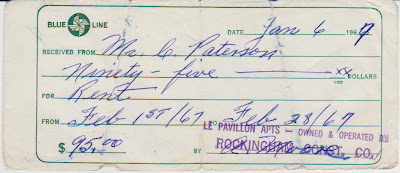 BLUE LINE
DATE Jan 6 1967
RECEIVED FROM Mr. C. Paterson
Ninety-five xx/100 DOLLARS
FOR Rent
FROM Feb 1st/67 TO Feb 28/67
LE PAVILLON APTS — OWNED & OPERATED BY
$ 95.00 BY ROCKINGHAM CONST. CO.